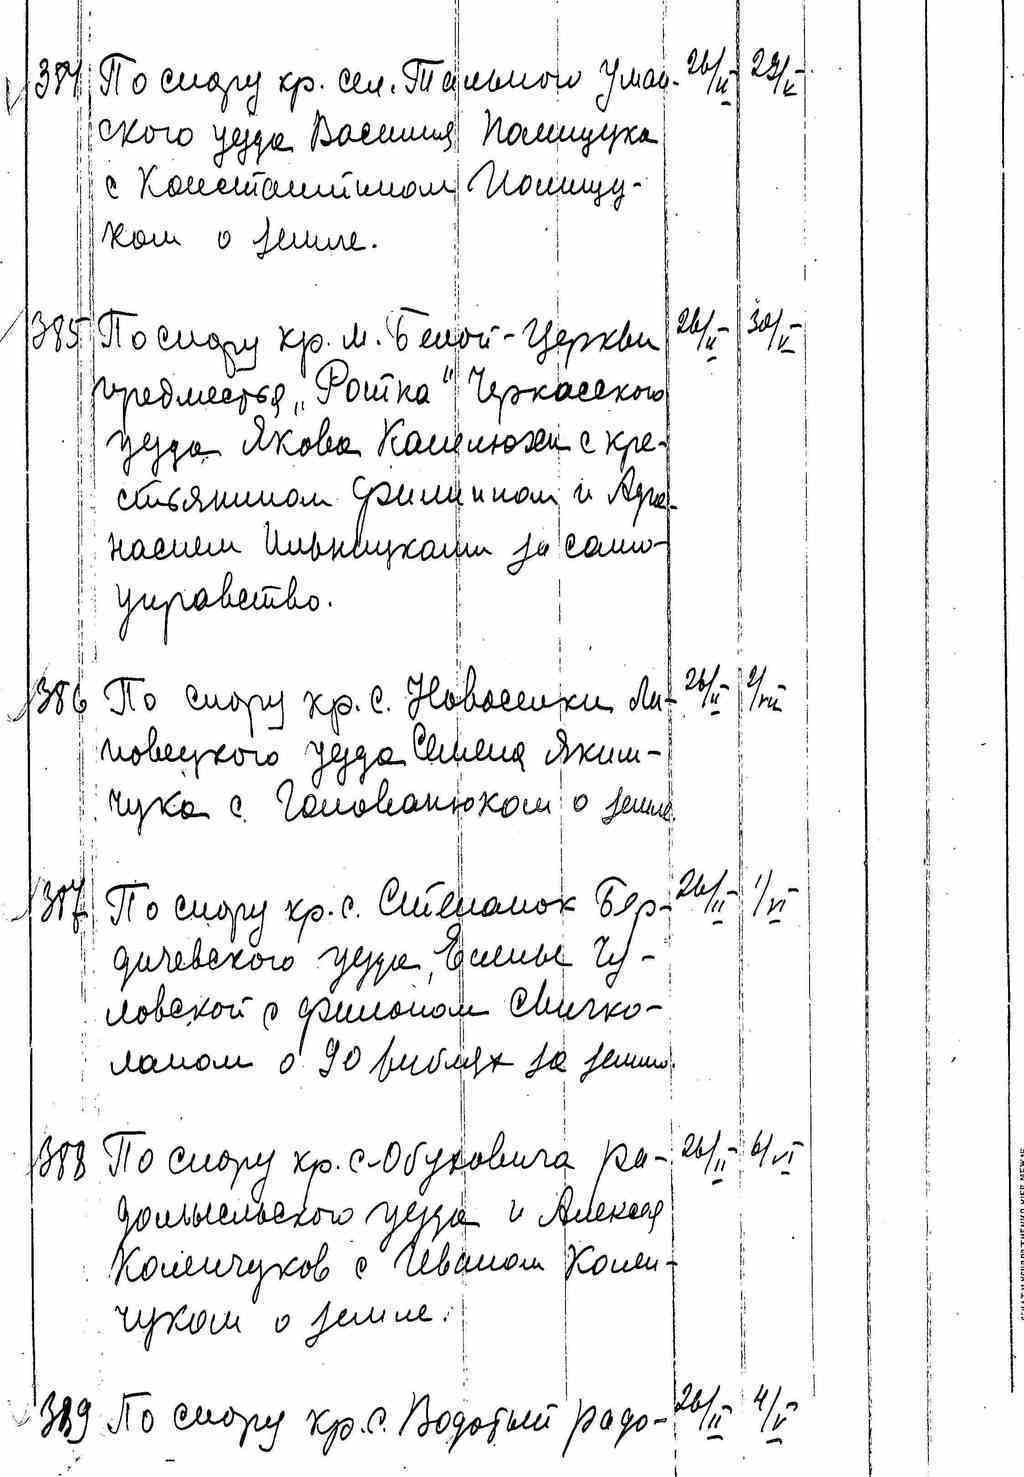 384 По спору кр. сел. Тального Уман- 26/II 29/V
ского уезда Василия Полищука
с Константином Полищу-
ком о земле.
385 По спору кр. м. Белой-Церкви 26/II 30/V
предместья „Ротка“ Черкасского
уезда Якова Камелюхи с кре-
стьянином Филипном и Афа-
насием Ильницкими за само-
управство.
386 По спору кр. с. Новоселки Ли- 26/II 2/VII
повецкого уезда Семена Яким-
чука с Голованюком о земле.
387 По спору кр. с. Степанок Бер- 26/II 1/VI
дичевского уезда, Елены Чу-
ловской с Филоном Свичко-
ламом о 90 рублях за землю.
388 По спору кр. с. Обуховича ра- 26/II 6/VI
домысльского уезда и Алексея
Коленчуков с Иваном Колен-
чуком о земле.
389 По спору кр. с. Водотый радо- 26/II 4/V